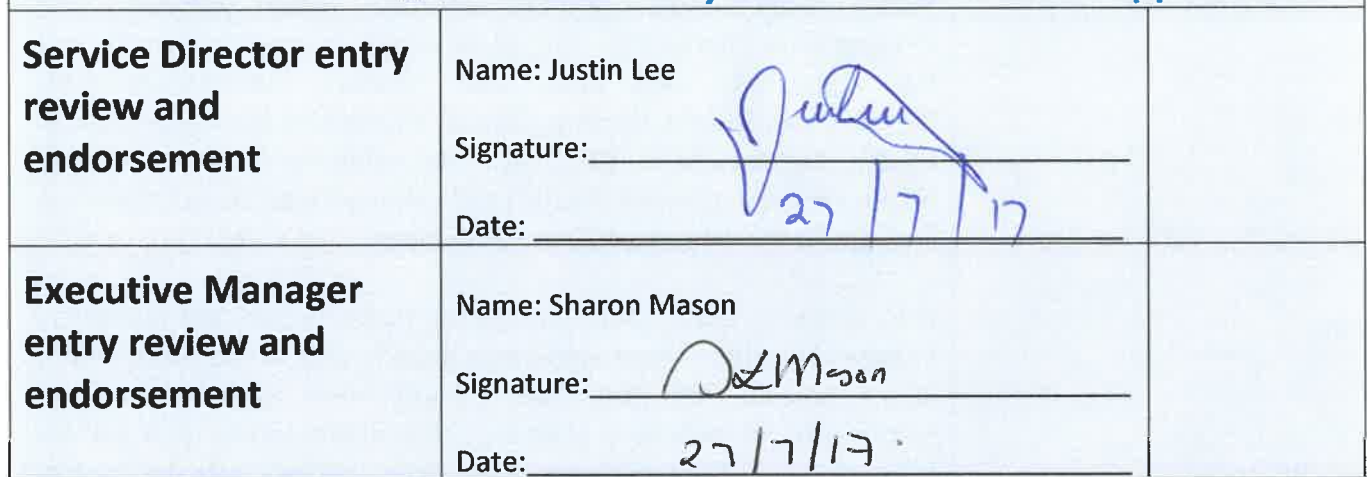 Service Director entry
review and
endorsement
Name: Justin Lee
Signature:
Date: 27/7/17
Executive Manager
entry review and
endorsement
Name: Sharon Mason
Signature: SLMason
Date: 27/7/17